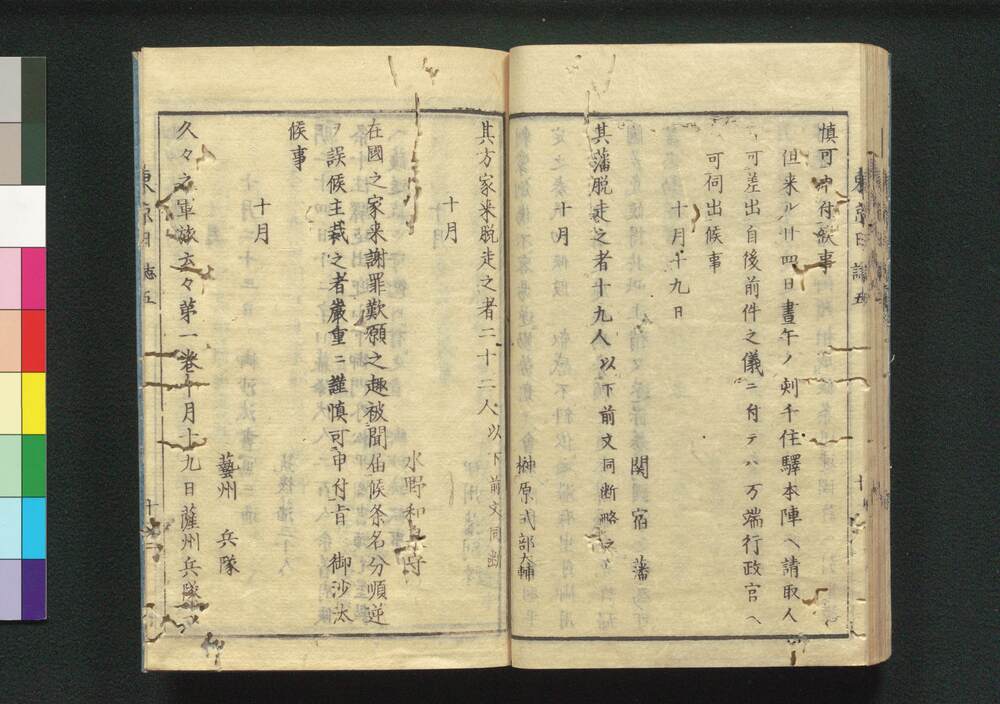 慎可申付候事
但来ル廿四日晝午ノ刻千住驛本陣ヘ請取人
可差出自後前件之儀ニ付テハ万端行政官ヘ
可伺出候事
十月十九日
関宿藩
其藩脱走之者十九人以下前文同断略之
十月
榊原式部大輔
其方家来脱走之者二十二人以下前文同断
十月
水野和泉守
在國之家来謝罪歎願之趣被聞届候条名分順逆
ヲ誤候主裁之者嚴重ニ謹慎可申付旨御沙汰
候事
十月
藝州兵隊
久々之軍旅云々第一巻十月十九日薩州兵隊
東京日誌五